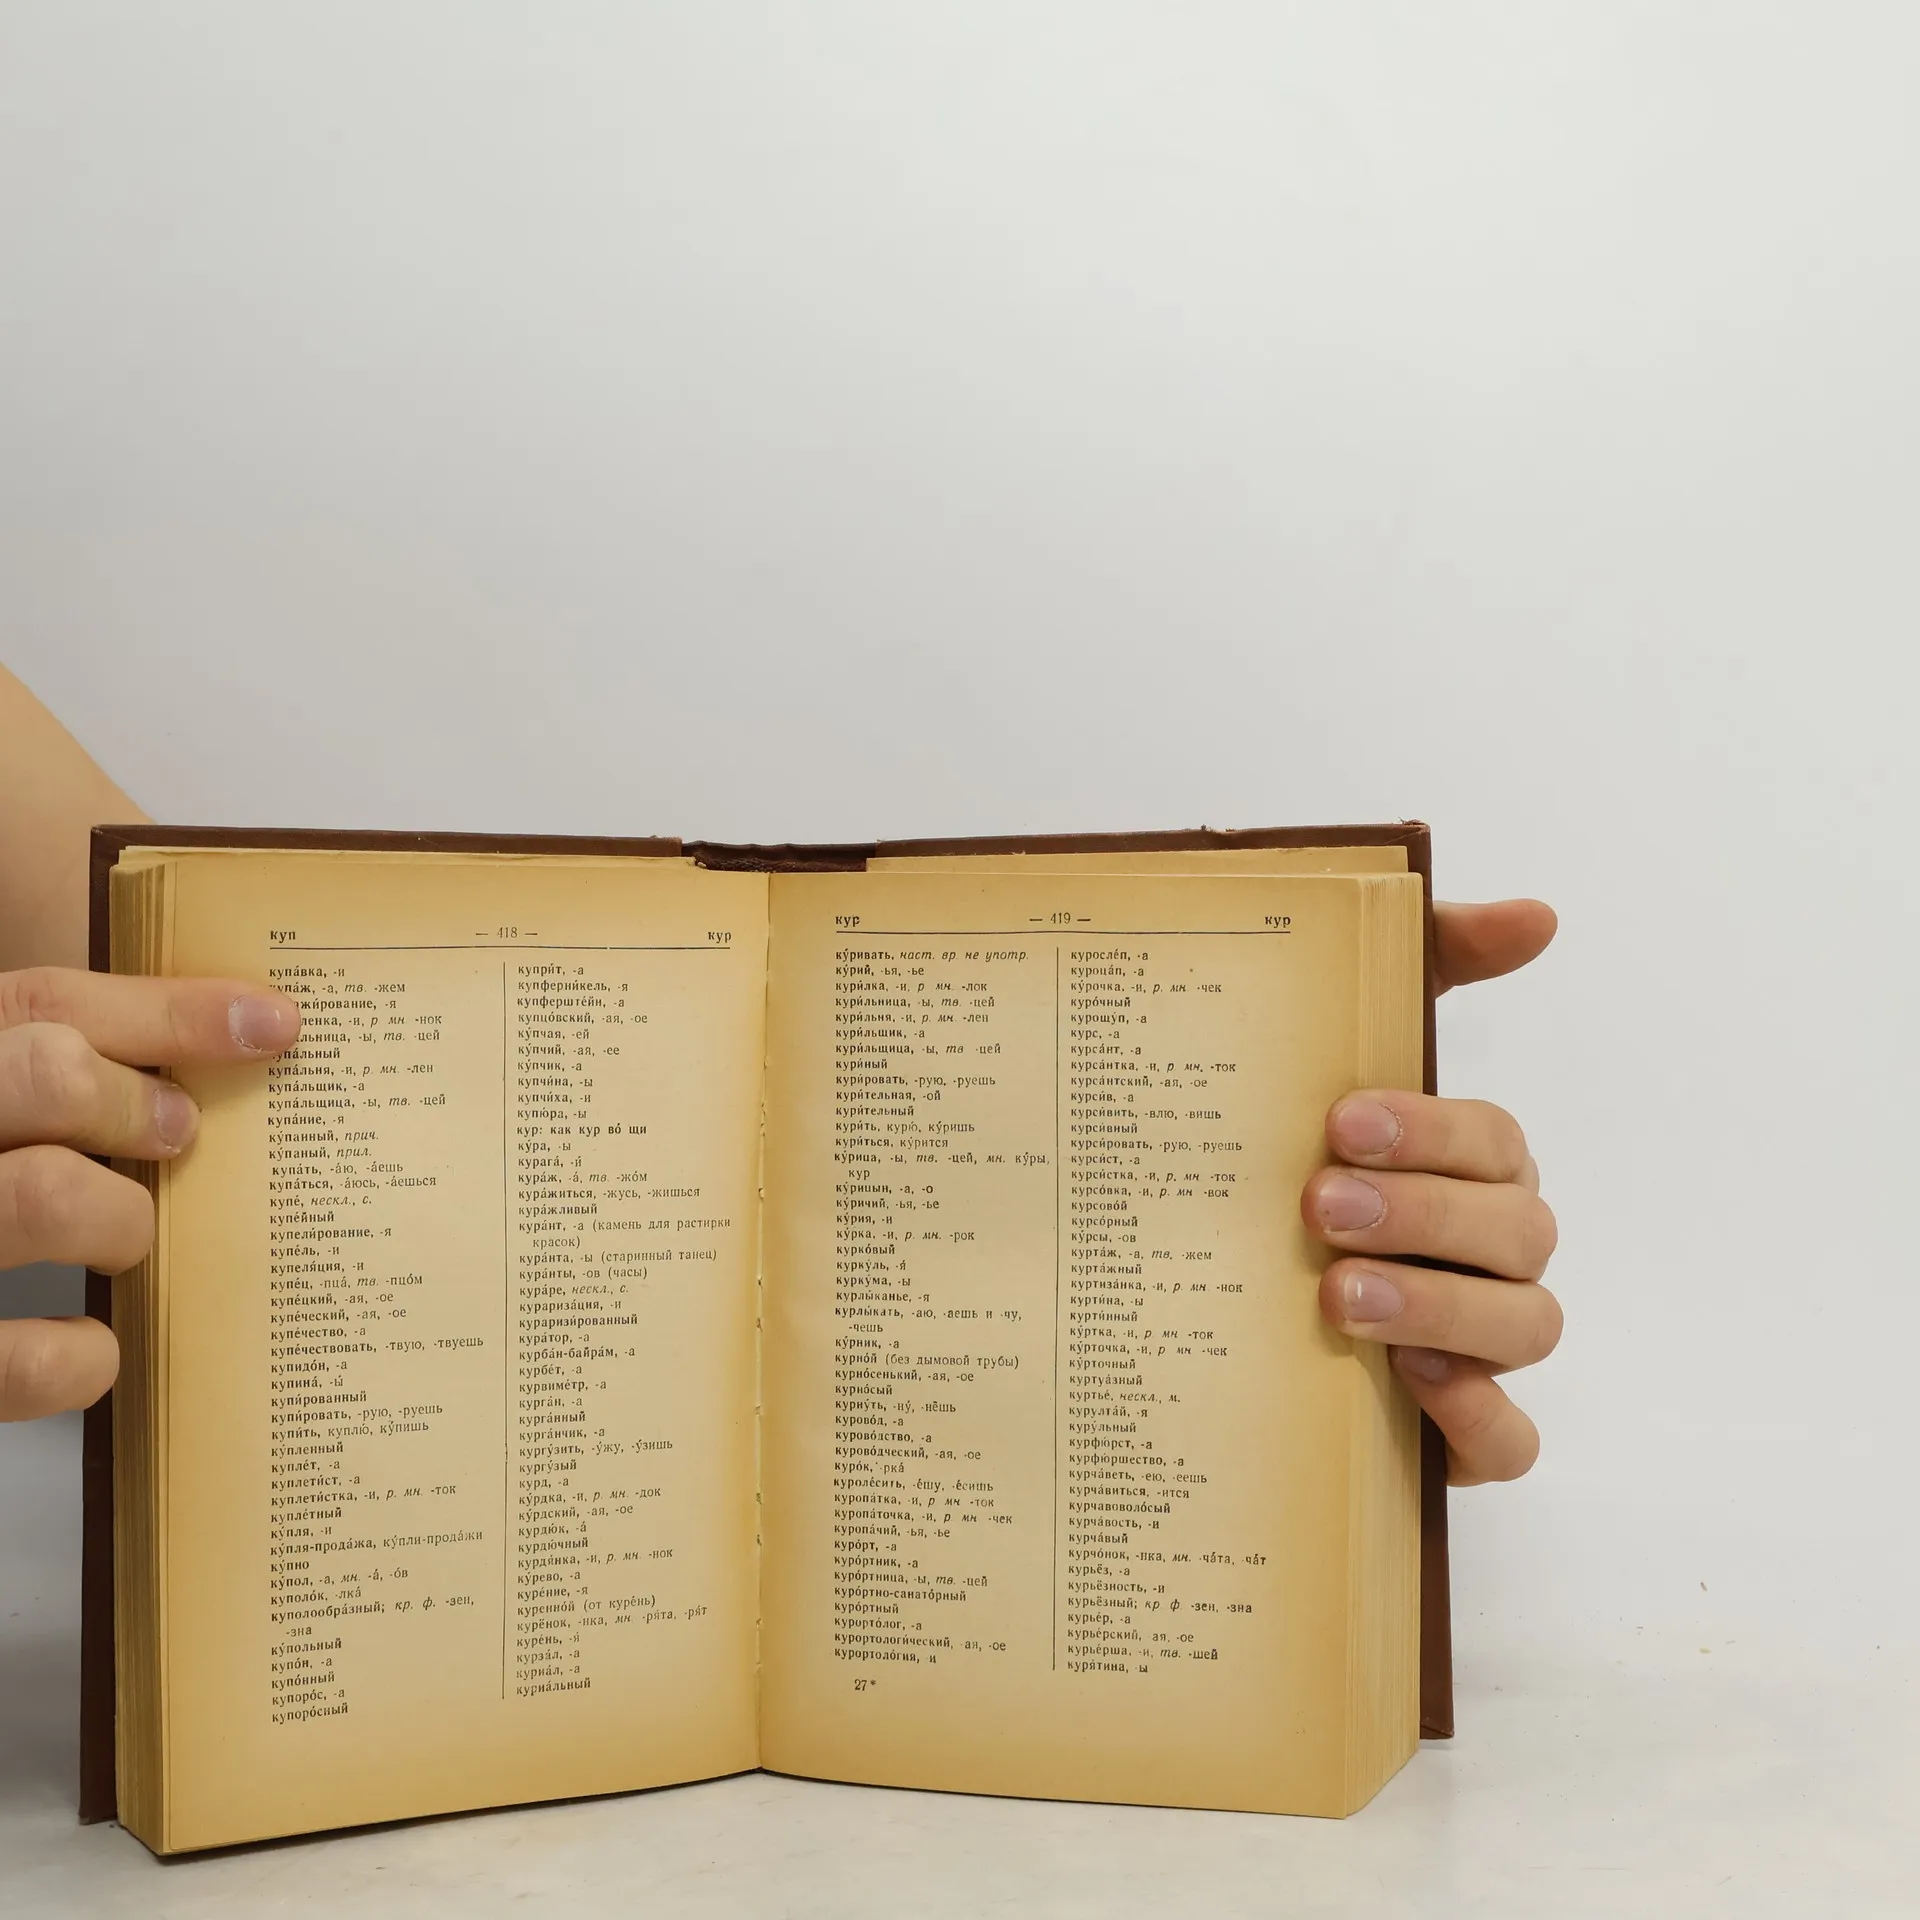 куп — 418 — кур
купа́вка, -и
-а, тв. -жем
-я
-и, р мн. -нок
-ы, тв. -цей
купа́льный
купа́льня, -и, р. мн. -лен
купа́льщик, -а
купа́льщица, -ы, тв. -цей
купа́ние, -я
ку́панный, прич.
ку́паный, прил.
купа́ть, -а́ю, -а́ешь
купа́ться, -а́юсь, -а́ешься
купе́, нескл., с.
купе́йный
купели́рование, -я
купе́ль, -и
купеля́ция, -и
купе́ц, -пца́, тв. -пцо́м
купе́цкий, -ая, -ое
купе́ческий, -ая, -ое
купе́чество, -а
купе́чествовать, -твую, -твуешь
купидо́н, -а
купина́, -ы́
купи́рованный
купи́ровать, -рую, -руешь
купи́ть, куплю́, ку́пишь
ку́пленный
купле́т, -а
куплети́ст, -а
куплети́стка, -и, р. мн. -ток
купле́тный
ку́пля, -и
ку́пля-прода́жа, ку́пли-прода́жи
ку́пно
ку́пол, -а, мн. -а́, -о́в
куполо́к, -лка́
куполообра́зный; кр. ф. -зен,
-зна
ку́польный
купо́н, -а
купо́нный
купоро́с, -а
купоро́сный
купри́т, -а
купферни́кель, -я
купферште́йн, -а
купцо́вский, -ая, -ое
ку́пчая, -ей
ку́пчий, -ая, -ее
ку́пчик, -а
купчи́на, -ы
купчи́ха, -и
купю́ра, -ы
кур: как кур во́ щи
ку́ра, -ы
курага́, -и́
кура́ж, -а́, тв. -жо́м
кура́житься, -жусь, -жишься
кура́жливый
кура́нт, -а (камень для растирки
красок)
кура́нта, -ы (старинный танец)
кура́нты, -ов (часы)
кура́ре, нескл., с.
курариза́ция, -и
кураризи́рованный
кура́тор, -а
курба́н-байра́м, -а
курбе́т, -а
курвиме́тр, -а
курга́н, -а
курга́нный
курга́нчик, -а
кургу́зить, -у́жу, -у́зишь
кургу́зый
курд, -а
ку́рдка, -и, р. мн. -док
ку́рдский, -ая, -ое
курдю́к, -а́
курдю́чный
курдя́нка, -и, р. мн. -нок
ку́рево, -а
куре́ние, -я
куренно́й (от куре́нь)
курёнок, -нка, мн. -ря́та, -ря́т
куре́нь, -я́
курза́л, -а
куриа́л, -а
куриа́льный
кур — 419 — кур
ку́ривать, наст. вр. не употр.
ку́рий, -ья, -ье
кури́лка, -и, р мн. -лок
кури́льница, -ы, тв. -цей
кури́льня, -и, р. мн. -лен
кури́льщик, -а
кури́льщица, -ы, тв -цей
кури́ный
кури́ровать, -рую, -руешь
кури́тельная, -ой
кури́тельный
кури́ть, курю́, ку́ришь
кури́ться, ку́рится
ку́рица, -ы, тв. -цей, мн. ку́ры,
кур
ку́рицын, -а, -о
ку́ричий, -ья, -ье
ку́рия, -и
ку́рка, -и, р. мн. -рок
курко́вый
курку́ль, -я́
курку́ма, -ы
курлы́канье, -я
курлы́кать, -аю, -аешь и -чу,
-чешь
ку́рник, -а
курно́й (без дымовой трубы)
курно́сенький, -ая, -ое
курно́сый
курну́ть, -ну́, -нёшь
курово́д, -а
курово́дство, -а
курово́дческий, -ая, -ое
куро́к, -рка́
куроле́сить, -е́шу, -е́сишь
куропа́тка, -и, р мн -ток
куропа́точка, -и, р. мн -чек
куропа́чий, -ья, -ье
куро́рт, -а
куро́ртник, -а
куро́ртница, -ы, тв. -цей
куро́ртно-санато́рный
куро́ртный
курорто́лог, -а
курортологи́ческий, -ая, -ое
курортоло́гия, -и
27*
куросле́п, -а
куроца́п, -а
ку́рочка, -и, р. мн. -чек
куро́чный
курощу́п, -а
курс, -а
курса́нт, -а
курса́нтка, -и, р мн. -ток
курса́нтский, -ая, -ое
курси́в, -а
курси́вить, -влю, -вишь
курси́вный
курси́ровать, -рую, -руешь
курси́ст, -а
курси́стка, -и, р. мн -ток
курсо́вка, -и, р. мн -вок
курсово́й
курсо́рный
ку́рсы, -ов
курта́ж, -а, тв. -жем
курта́жный
куртиза́нка, -и, р. мн -нок
курти́на, -ы
курти́нный
ку́ртка, -и, р мн -ток
ку́рточка, -и, р мн -чек
ку́рточный
куртуа́зный
куртье́, нескл., м.
курулта́й, -я
куру́льный
курфю́рст, -а
курфю́ршество, -а
курча́веть, -ею, -еешь
курча́виться, -ится
курчавоволо́сый
курча́вость, -и
курча́вый
курчо́нок, -нка, мн. -ча́та, -ча́т
курьёз, -а
курьёзность, -и
курьёзный; кр ф. -зен, -зна
курье́р, -а
курье́рский, ая, -ое
курье́рша, -и, тв. -шей
куря́тина, -ы